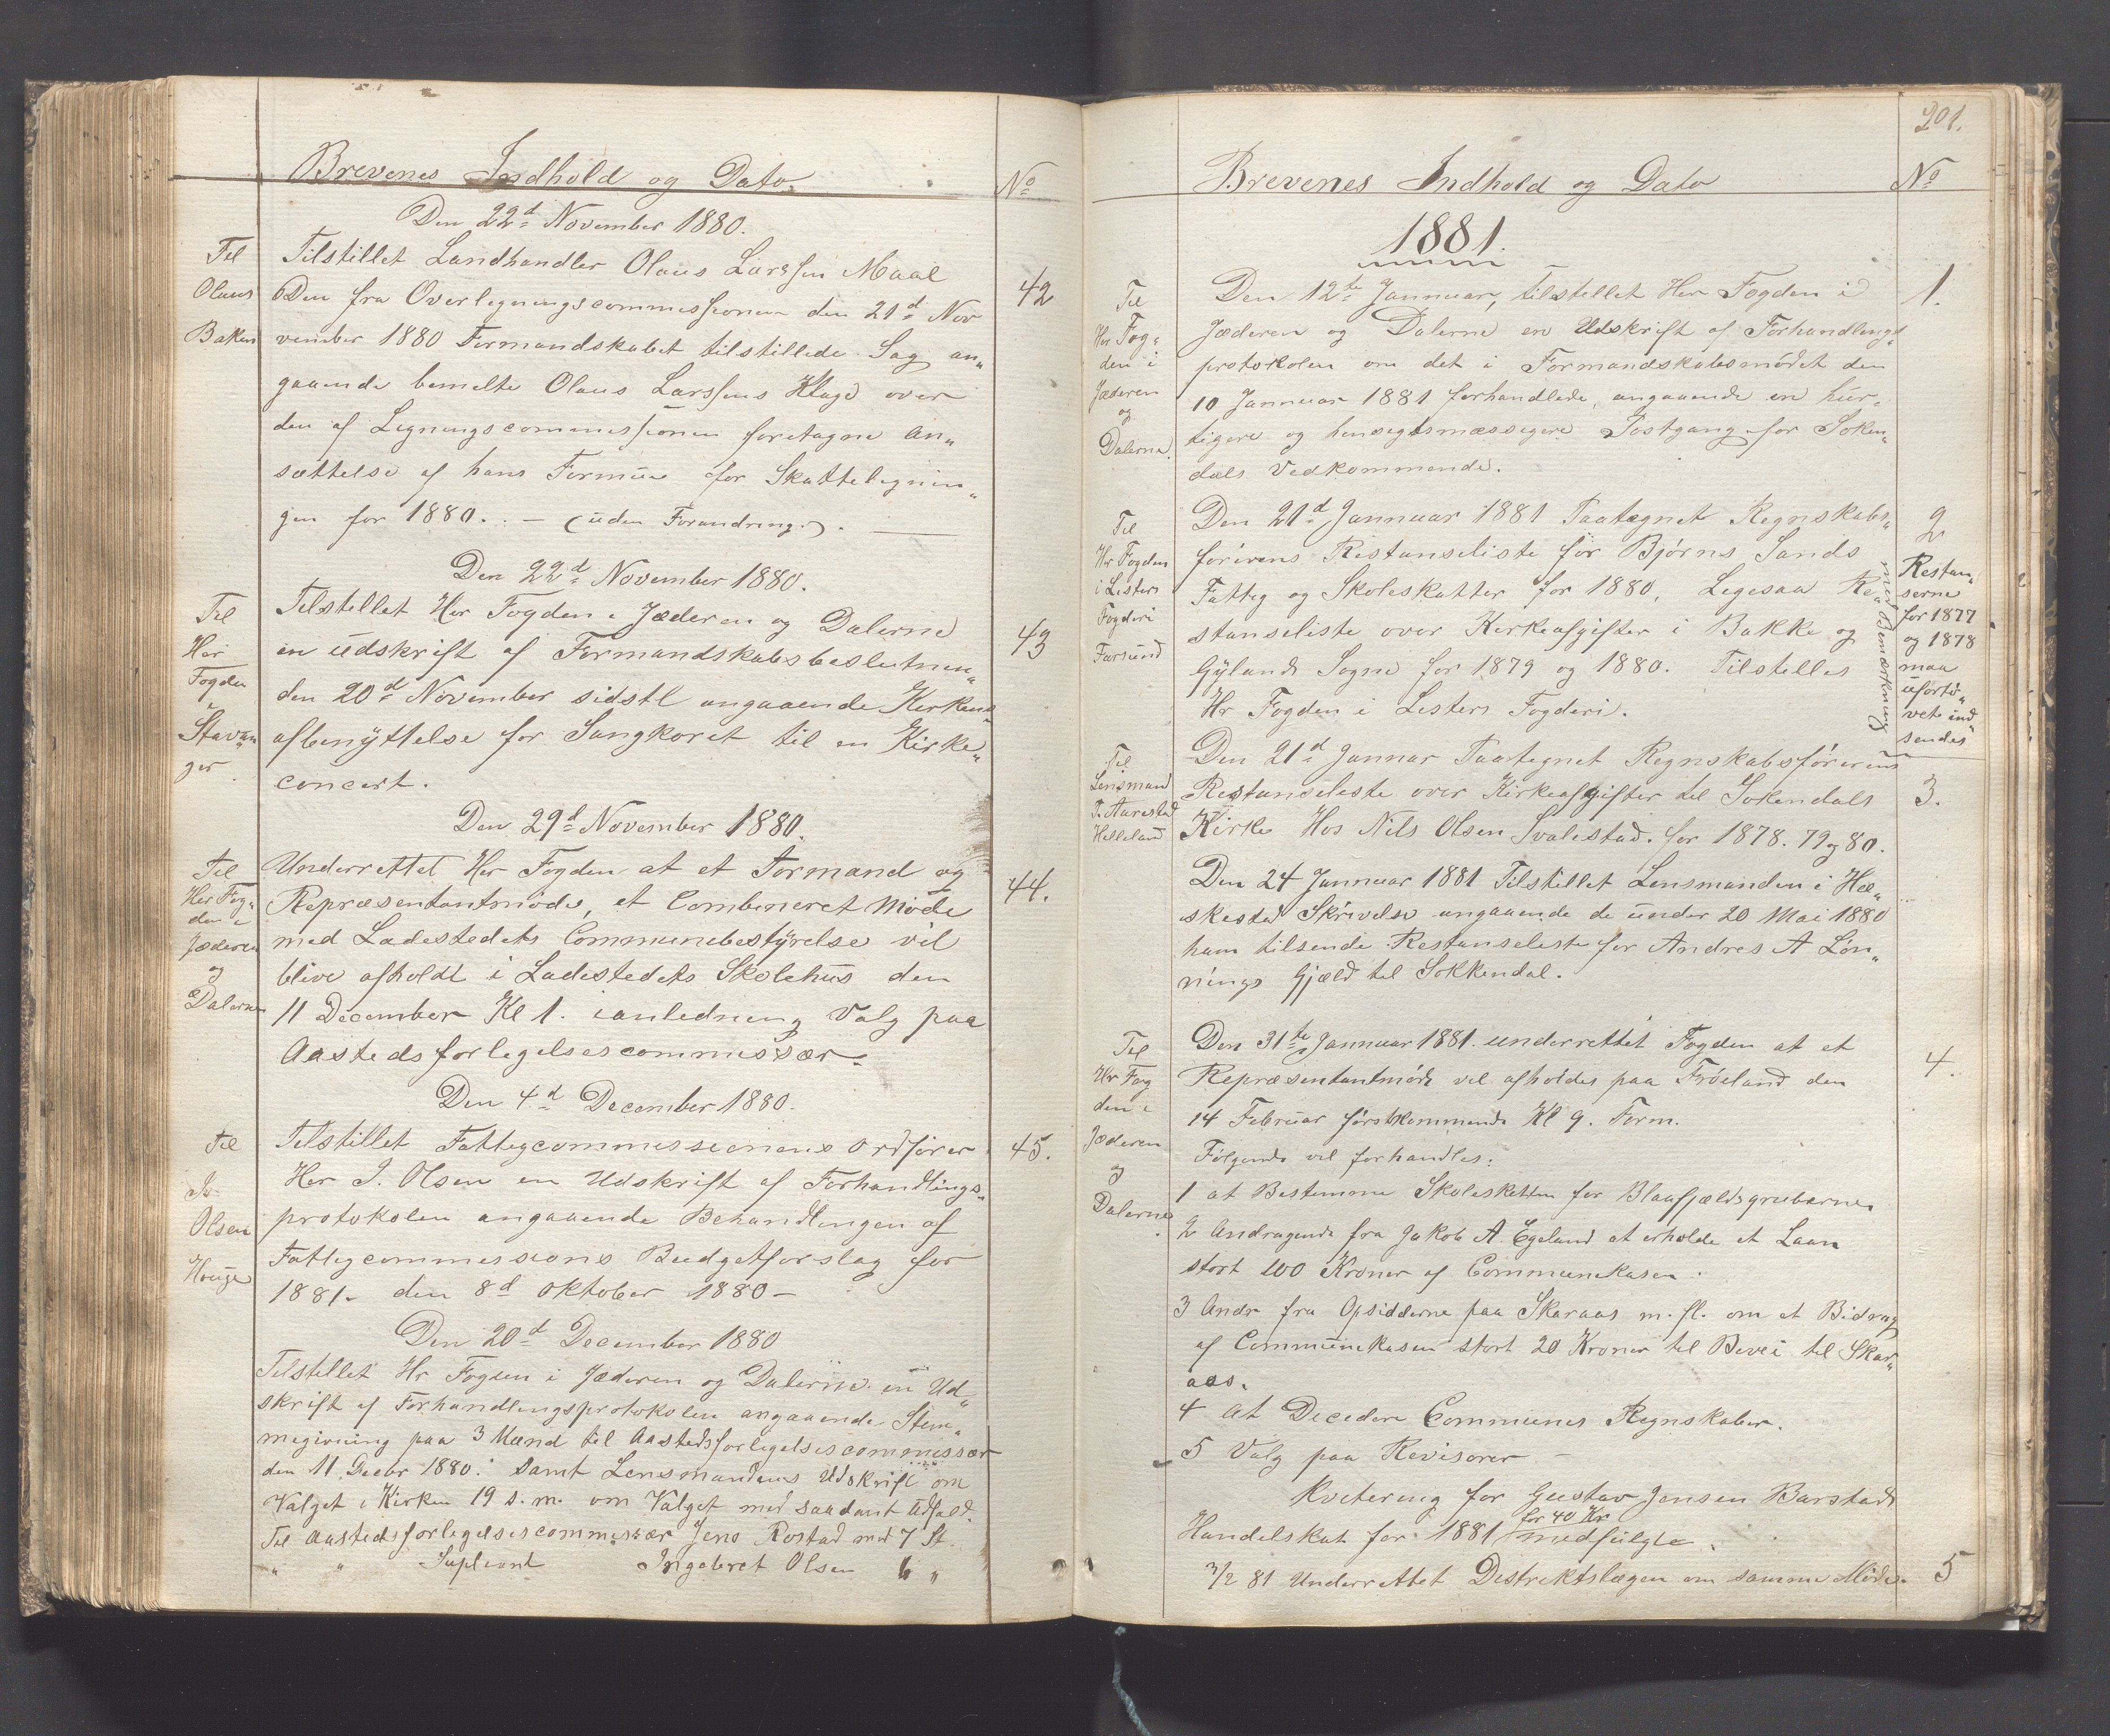 Brevenes Indhold og Dato.
No
Den 22d November 1880.
Til
Olaus
Baken
Tilstillet Landhandler Olaus Larssen Maal
42
Den fra Overlegningscommissionen den 21d Nov
vember 1880 Formandskabet tilstillede Sag an„
gaaende bemelte Olaus Larssens Klage over
den af Ligningscommissionen foretagne An„
sættelse af hans Formue for Skattelignin„
gen for 1880. . – (uden Forandring.).
Den 22d November 1880.
Til
Her
Fogden
i
Stavan„
ger
Tilstillet Her Fogden i Jæderen og Dalerne
43
en Udskrift af Formandskabsbeslutnin„
den 20d November sidstl angaaende Kirkens
afbenyttelse for Sangkoret til en Kirke„
concert.
Den 29d November 1880.
Til
Her Fog„
den i
Jæderen
og
Dalerne
Underrettet Her Fogden at et Formand og
44.
Repræsentantmøde, et Combineret Møde
med Ladestedets Communebestyrelse vil
blive afholdt i Ladestedets Skolehus den
11 December Kl 1. ianledning Valg paa
Aastedsforlegelsescommissær.
Den 4d December 1880.
Til
Olsen
Houge
Tilstillet Fattigcommissionens Ordfører
45.
Her J. Olsen en Udskrift af Forhandlings„
protokolen angaaende Behandlingen af
Fattigcommissions Budgetforslag for
1881– den 8d Oktober 1880–
Den 20d December 1880
Tilstillet Hr Fogden i Jæderen og Dalerne en Ud„
skrift af Forhandlingsprotokolen angaaende Stem„
megivning paa 3 Mænd til Aastedsforlegelsescommissær
den 11 Decbr 1880. Samt Lensmandens Udskrift om
Valget i Kirken 19 s. m. om Valget med saadant Udfald.
Til Aastedsforlegelsescommissær Jens Rostad med 7 St.
„ „ Supleant Ingebret Olsen 6 „
201.
Brevenes Indhold og Dato
No
1881.
Til
Hr Fog„
den i
Jæderen
og
Dalerne.
Den 12te Januuar, tilstillet Her Fogden i
1.
Jæderen og Dalerne en Udskrift af Forhandlings„
protokolen om det i Formandskabsmødet den
10 Januuar 1881 forhandlede, angaaende en hur„
tigere og hensigtsmæssigere Postgang for Soken„
dals Vedkommende.
Til
Hr Fogden
i Listers
Fogderi
Farsund
Den 21d Januuar 1881 Paategnet Regnskabs„
2
førerens Restanseliste for Bjørns Sands
Fattig og Skoleskatter for 1880, Legesaa Re„
stanseliste over Kirkeafgifter i Bakke og
Gylands Sogne for 1879 og 1880. Tilstilles
Hr Fogden i Listers Fogderi.
med Bemærkning
Restan„
serne
for 1877
og 1878
maa
ufortø„
vet ind
sendes
Til
Lensmand
T. Aarestad
Helleland
Den 21d Januar Paategnet Regnskabsførerens
Restanseleste over Kirkeafgifter til Sokendals
3.
Kirke Hos Nils Olsen Svalestad. for 1878. 79 og 80.
Den 24 Januuar 1881 Tilstillet Lensmanden i He„
skestad Skrivelse angaaende de under 20 Mai 1880
ham tilsende Restanseleste for Andres A Løn„
nings Gjæld til Sokkendal.
Til
Hr Fog
den i
Jæderen
og
Dalerne.
Den 31te Januuar 1881. underrettet Fogden at et
4.
Repræsentantmøde vil afholdes paa Frøeland den
14 Februar førstkommende Kl 9. Form.
Følgende vil forhandles:
1 at Bestemme Skoleskatten for Blaafjældsgruberne
2 Andragende fra Jakob A. Egeland at erholde et Laan
stort 100 Kroner af Communekasen.
3 Andr fra Opsidderne paa Skaraas m. fl. om et Bidrag
af Communekasen stort 20 Kroner til Bevei til Skar„
aas.
4 At Decedere Communes Regnskaber.
5 Valg paa Revisorer –
Kvitering for Gustav Jensen Barstads
for 40 Kr
Handelskat for 1881 medfulgte.
3/2 81 Underrettet Destriktslægen om samme Møde.
5